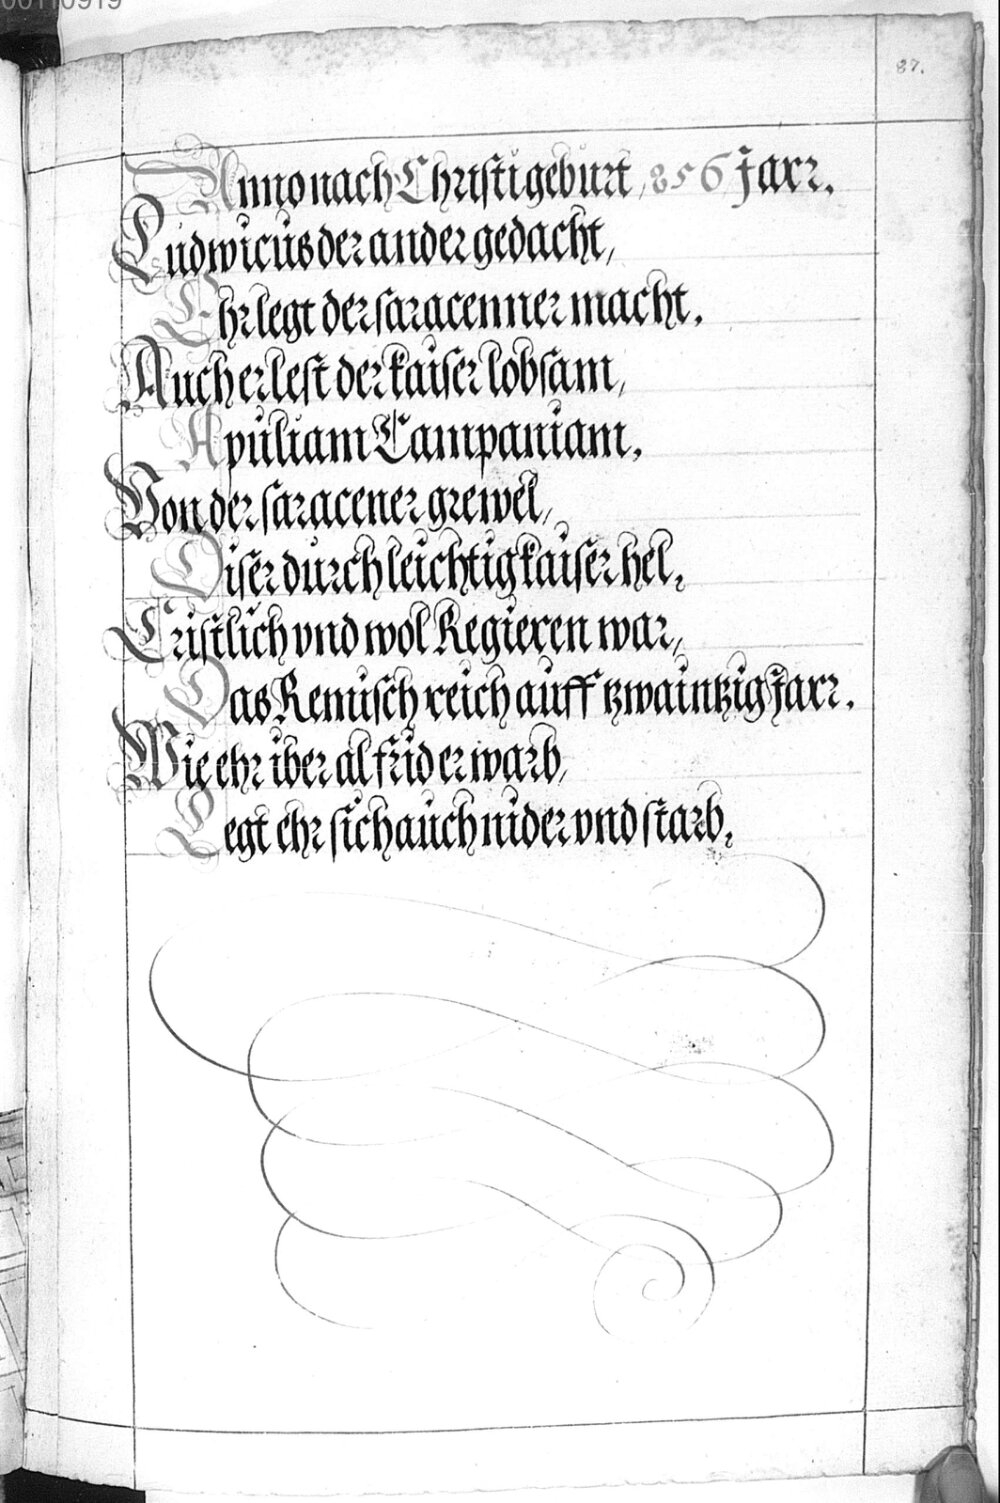 00110919
87.
Anno nach Christi geburt 856 Jarr.
Ludwicus der ander gedacht,
Ehr legt der saracenner macht.
Auch erlest der kaiser lobsam,
Apuliam Campaniam.
Von der saracener grewel,
Diser durchleichtig kaiser hel.
Cristlich vnd wol Regieren war,
Das Remisch reich auff tzwaintzig Jarr.
Wie ehr iber al frid erwarb,
Legt ehr sich auch nider vnd starb.